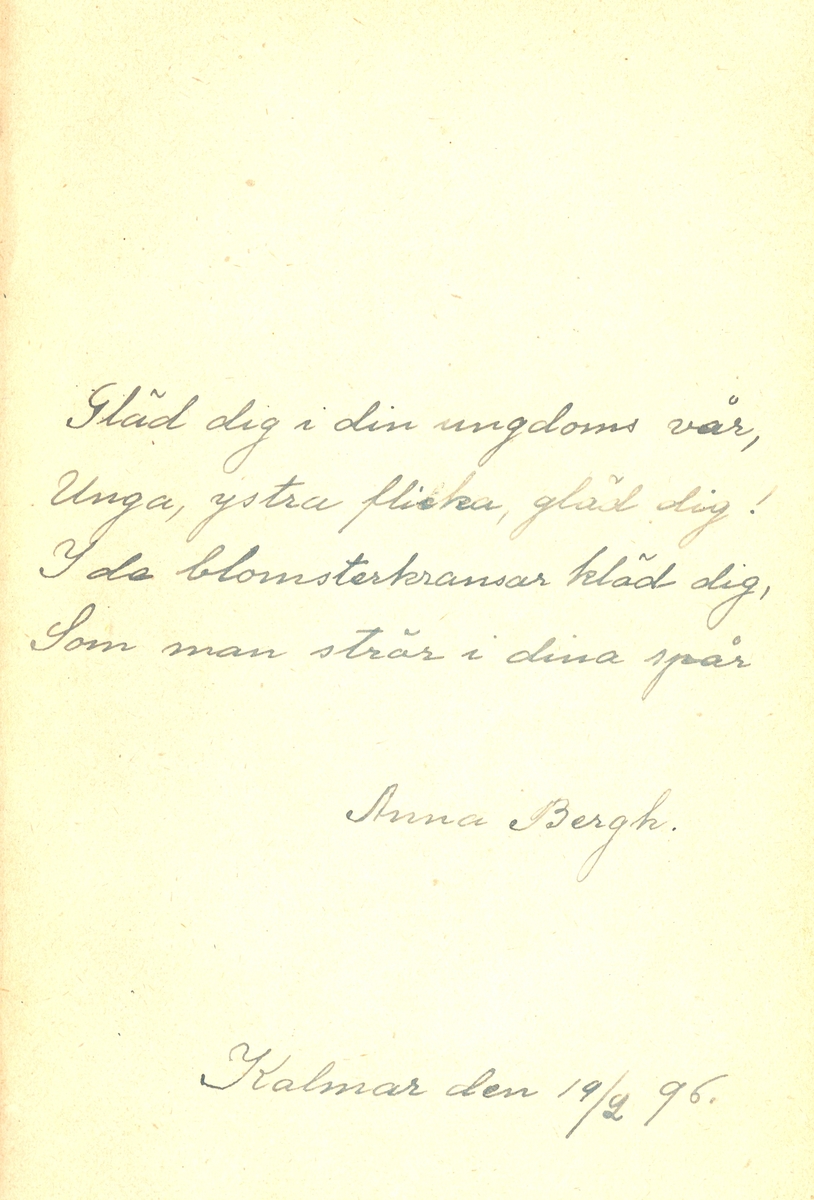 Gläd dig i din ungdoms vår,
Unga, ystra flicka, gläd dig!
I de blomsterkransar kläd dig,
Som man strör i dina spår
Anna Bergh.
Kalmar den 19/2 96.